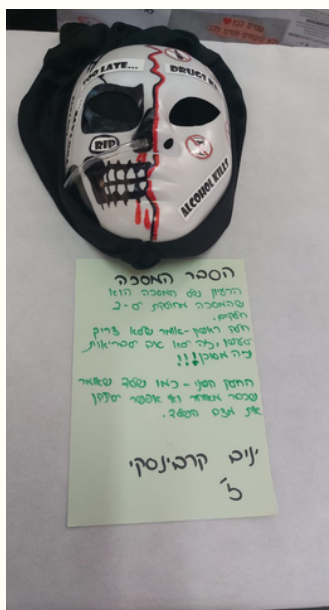 TOO LATE...
DRUGS
RIP
ALCOHOL KILLS
הסבר המסכה
הרעיון של המסכה הוא
שהמסכה מחולקת ל-2
חלקים.
חלק ראשון-אומר שלא צריך
לעשן, לא טוב לבריאות
וזה מסוכן!!!
החלק השני - כמו שלד שאומר
שכבר מאוחר ואי אפשר לתקן
את מצב השלד.
יניב קרבינסקי
ז'